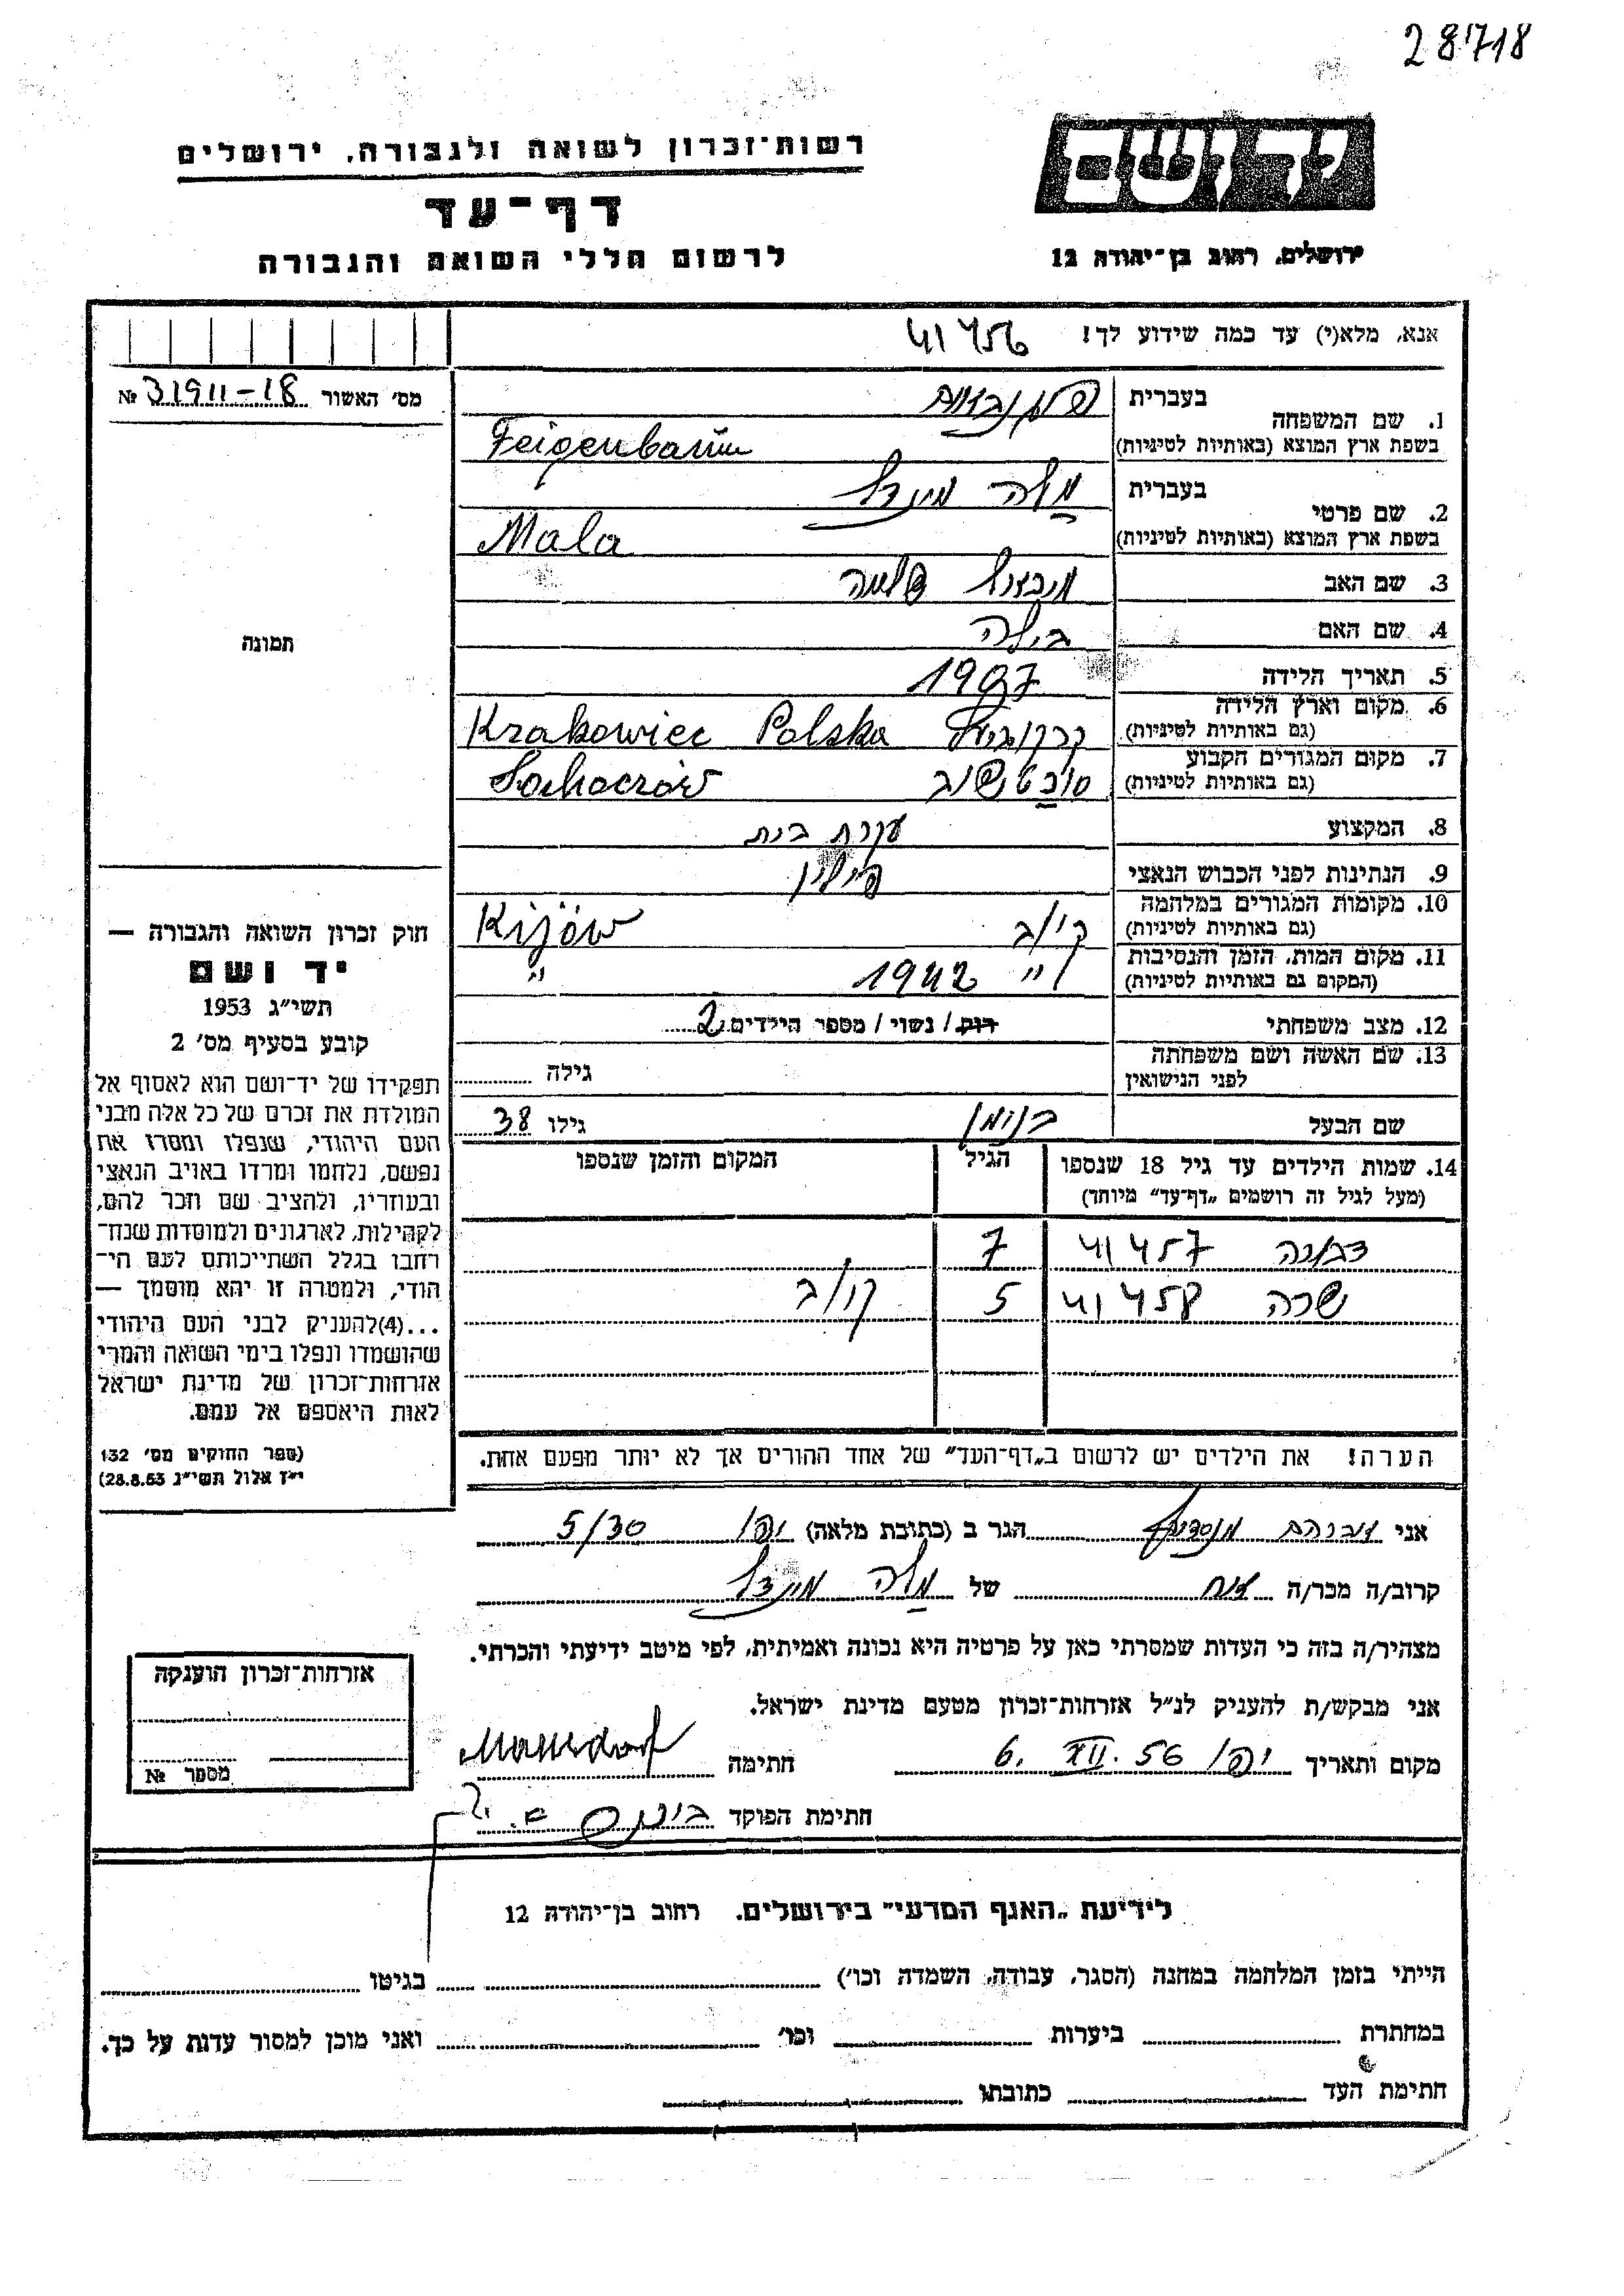 28718
יד ושם
רשות־זכרון לשואה ולגבורה, ירושלים
דף־עד
לרשום חללי השואה והגבורה
ירושלים, רחוב בן־יהודה 12
אנא, מלא(י) עד כמה שידוע לך! 41456
מס׳ האשור 31911-18 №
תמונה
1. שם המשפחה
בעברית
בשפת ארץ המוצא (באותיות לטיניות) Feigenbaum
2. שם פרטי
בעברית מלה מינדל
בשפת ארץ המוצא (באותיות לטיניות) Mala
3. שם האב שלמה
4. שם האם בילה
5. תאריך הלידה 1907
6. מקום וארץ הלידה
(גם באותיות לטיניות) Krakowiec Polska
7. מקום המגורים הקבוע
(גם באותיות לטיניות) Sochaczów
8. המקצוע עקרת בית
9. הנתינות לפני הכבוש הנאצי פולין
10. מקומות המגורים במלחמה
(גם באותיות לטיניות) קיוב Kijów
11. מקום המות, הזמן והנסיבות
(המקום גם באותיות לטיניות) " 1942 "
12. מצב משפחתי רוק / נשוי / מספר הילדים 2
13. שם האשה ושם משפחתה
לפני הנישואין גילה
שם הבעל בנימין גילו 38
14. שמות הילדים עד גיל 18 שנספו
(מעל לגיל זה רושמים „דף־עד” מיוחד)
הגיל
המקום והזמן שנספו
41457 7
שרה 41458 5 קיוב
הערה! את הילדים יש לרשום ב„דף־העד” של אחד ההורים אך לא יותר מפעם אחת.
חוק זכרון השואה והגבורה —
יד ושם
תשי״ג 1953
קובע בסעיף מס׳ 2
תפקידו של יד־ושם הוא לאסוף אל
המולדת את זכרם של כל אלה מבני
העם היהודי, שנפלו ומסרו את
נפשם, נלחמו ומרדו באויב הנאצי
ובעוזריו, ולהציב שם וזכר להם,
לקהילות, לארגונים ולמוסדות שנח־
רחבו בגלל השתייכותם לעם הי־
הודי, ולמטרה זו יהא מוסמך —
...(4)להעניק לבני העם היהודי
שהושמדו ונפלו בימי השואה והמרי
אזרחות־זכרון של מדינת ישראל
לאות היאספם אל עמם.
(ספר החוקים מס׳ 132
י״ז אלול תשי״ג 28.8.53)
אני אברהם מנסדורף הגר ב (כתובת מלאה) יפו 5/30
קרוב/ה מכר/ה אח של מלה מינדל
מצהיר/ה בזה כי העדות שמסרתי כאן על פרטיה היא נכונה ואמיתית, לפי מיטב ידיעתי והכרתי.
אני מבקש/ת להעניק לנ״ל אזרחות־זכרון מטעם מדינת ישראל.
מקום ותאריך יפו 6. XII. 56 חתימה Mansdorf
חתימת הפוקד
אזרחות־זכרון הוענקה
מספר №
לידיעת „האגף המדעי” בירושלים, רחוב בן־יהודה 12
הייתי בזמן המלחמה במחנה (הסגר, עבודה, השמדה וכו׳) בגיטו
במחתרת ביערות וכו׳ ואני מוכן למסור עדות על כך.
חתימת העד כתובתו